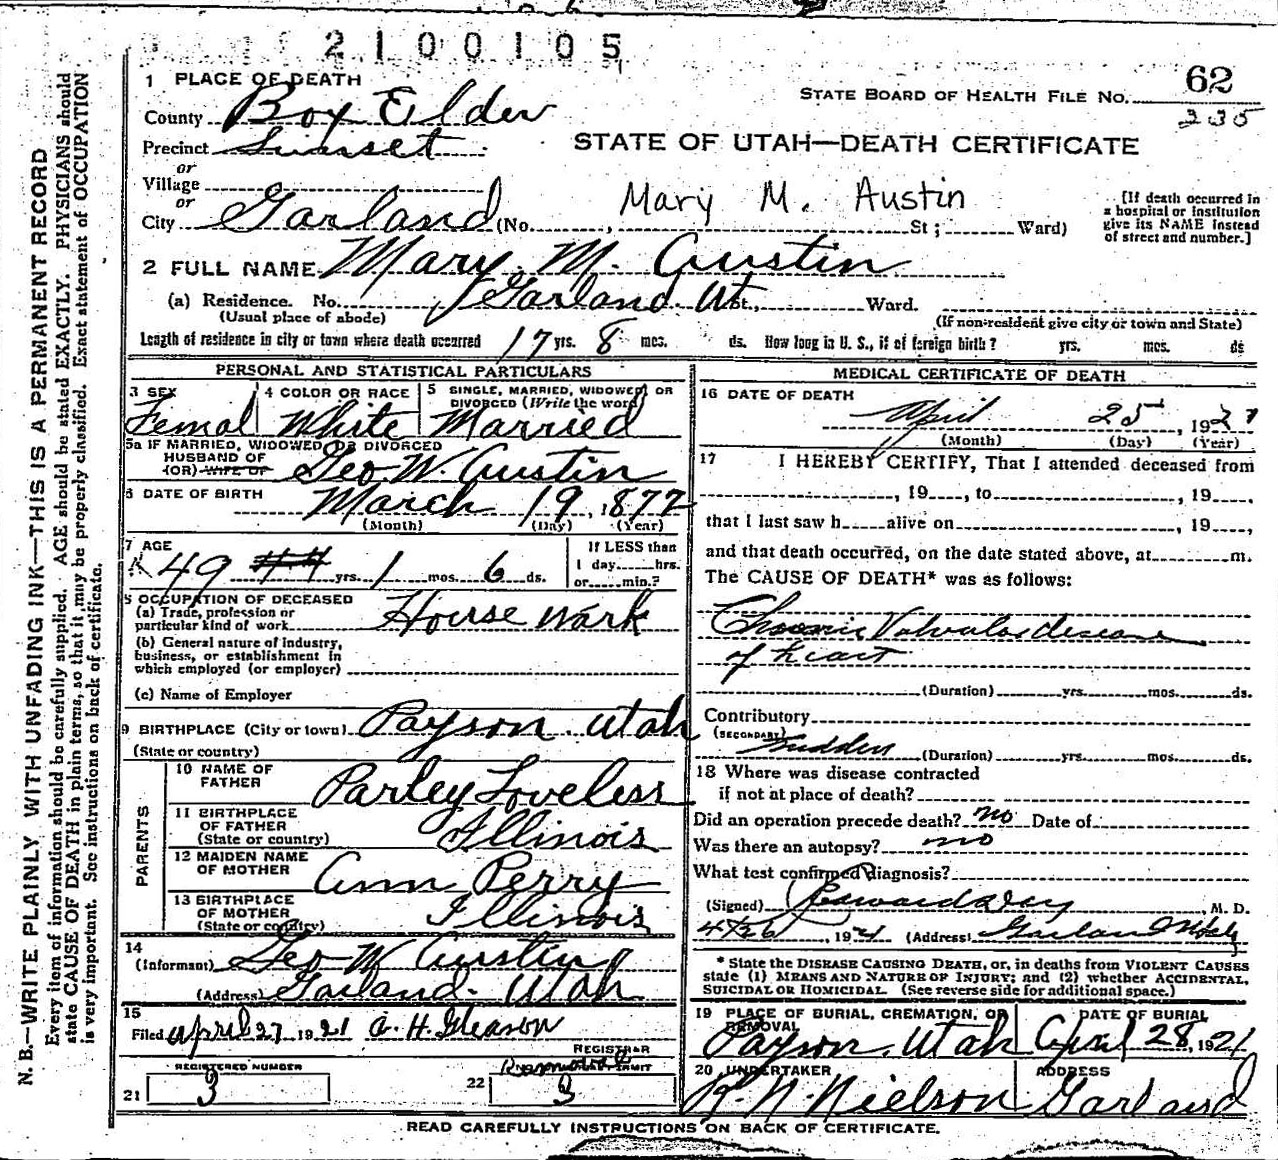 2100105
1 PLACE OF DEATH
County Box Elder
STATE BOARD OF HEALTH FILE NO. 62
235
Precinct Sunset
STATE OF UTAH—DEATH CERTIFICATE
or
Village
or
Mary M. Austin
City Garland (No. , St ; Ward)
[If death occurred in
a hospital or institution
give its NAME instead
of street and number.]
2 FULL NAME Mary M. Austin
(a) Residence. No. Garland Ut St., Ward.
(Usual place of abode)
(If non-resident give city or town and State)
Length of residence in city or town where death occurred 17 yrs. 8 mos. ds. How long in U. S., if of foreign birth? yrs. mos. ds
PERSONAL AND STATISTICAL PARTICULARS
3 SEX
Femal
4 COLOR OR RACE
White
5 SINGLE, MARRIED, WIDOWED, OR
DIVORCED (Write the word)
Married
5a IF MARRIED, WIDOWED, OR DIVORCED
HUSBAND OF
(OR) WIFE OF
Geo. W. Austin
6 DATE OF BIRTH
March 19, 1877
(Month) (Day) (Year)
7 AGE
49 44 yrs. 1 mos. 6 ds.
If LESS than
1 day hrs.
or min.?
8 OCCUPATION OF DECEASED
(a) Trade, profession or
particular kind of work House Wark
(b) General nature of industry,
business, or establishment in
which employed (or employer)
(c) Name of Employer
9 BIRTHPLACE (City or town) Payson. Utah
(State or country)
PARENTS
10 NAME OF
FATHER Parley Loveless
11 BIRTHPLACE
OF FATHER
(State or country) Illinois
12 MAIDEN NAME
OF MOTHER Ann Perry
13 BIRTHPLACE
OF MOTHER
(State or country) Illinois
14
(Informant) Geo W Austin
(Address) Garland. Utah
15
Filed April 27 1921 A. H. Gleason
REGISTRAR
REGISTERED NUMBER
21 3
PERMIT
22 3
MEDICAL CERTIFICATE OF DEATH
16 DATE OF DEATH
April 25, 1921
(Month) (Day) (Year)
17 I HEREBY CERTIFY, That I attended deceased from
, 19 , to , 19 ,
that I last saw h alive on , 19 ,
and that death occurred, on the date stated above, at m.
The CAUSE OF DEATH* was as follows:
Chronic Valvular disease
of heart
(Duration) yrs. mos. ds.
Contributory
(SECONDARY)
Sudden (Duration) yrs. mos. ds.
18 Where was disease contracted
if not at place of death?
Did an operation precede death? no Date of
Was there an autopsy? no
What test confirmed diagnosis?
(Signed) , M. D.
4/26, 1921 (Address) Garland Utah
* State the DISEASE CAUSING DEATH, or, in deaths from VIOLENT CAUSES
state (1) MEANS AND NATURE OF INJURY; and (2) whether ACCIDENTAL,
SUICIDAL OR HOMICIDAL. (See reverse side for additional space.)
19 PLACE OF BURIAL, CREMATION, OR
REMOVAL
Payson. Utah
DATE OF BURIAL
April 28, 1921
20 UNDERTAKER
R. N. Nielson
ADDRESS
Garland
READ CAREFULLY INSTRUCTIONS ON BACK OF CERTIFICATE.
N. B.—WRITE PLAINLY WITH UNFADING INK—THIS IS A PERMANENT RECORD
Every item of information should be carefully supplied. AGE should be stated EXACTLY. PHYSICIANS should
state CAUSE OF DEATH in plain terms, so that it may be properly classified. Exact statement of OCCUPATION
is very important. See instructions on back of certificate.